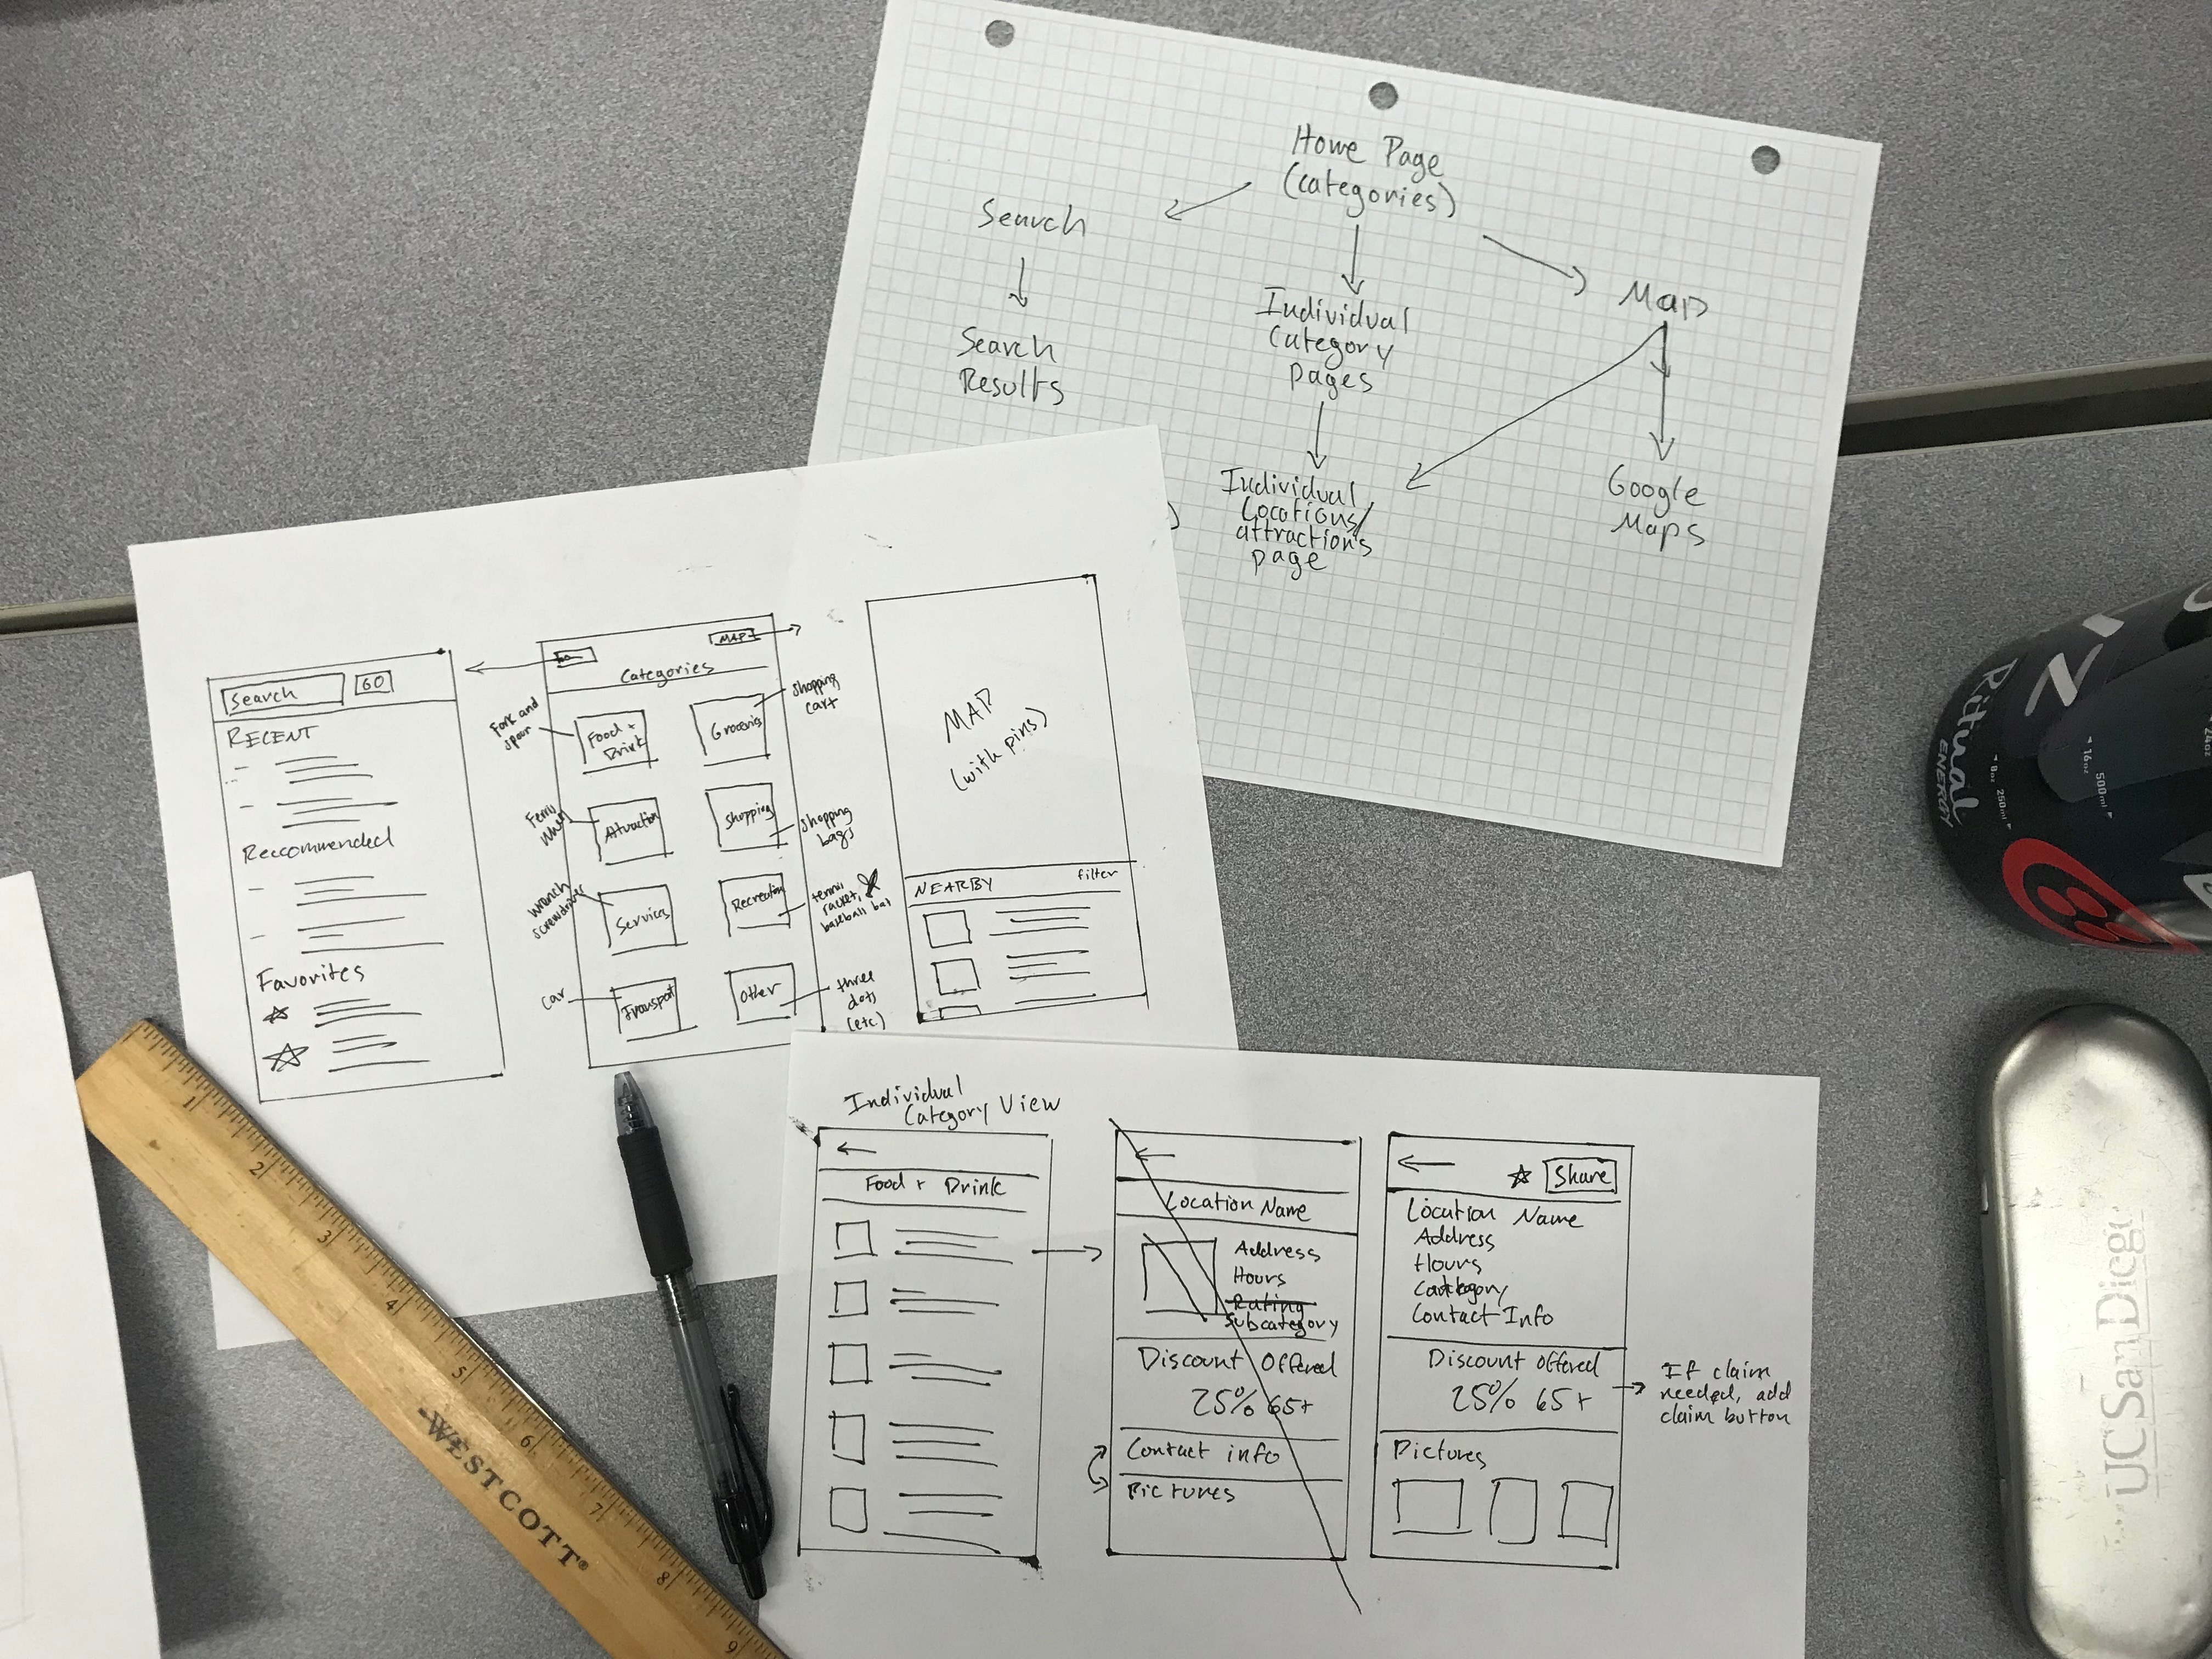 Home Page
(categories)
Search
Search
Results
Individual
Category
pages
Individual
Locations/
attractions
page
Map
Google
Maps
Search
GO
RECENT
Reccommended
Favorites
MAP
Categories
Fork and
spoon
Food +
Drink
Groceries
shopping
cart
Ferris
wheel
Attraction
Shopping
shopping
bags
wrench
screwdriver
Services
Recreation
tennis
racket,
baseball bat
car
Transport
Other
three
dots
(etc.)
MAP
(with pins)
NEARBY
filter
Individual
Category View
Food + Drink
Location Name
Address
Hours
Rating
Subcategory
Discount Offered
25% 65+
Contact info
Pictures
Share
Location Name
Address
Hours
Category
Contact Info
Discount offered
25% 65+
Pictures
If claim
needed, add
claim button
1
2
3
4
5
6
7
8
9
WESTCOTT®
Ritual
ENERGY
8oz 250ml
16oz 500ml
24oz
UC San Diego